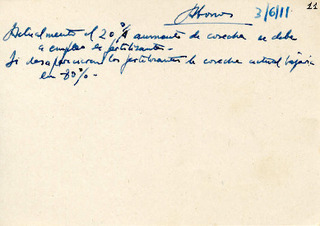 Abonos 3/6/11 11
Actualmente el 20% aumento de cosecha se debe
a emplea es fertilizante.-
Si desaparecieran los fertilizantes la cosecha actual bajaría
en 80%.-